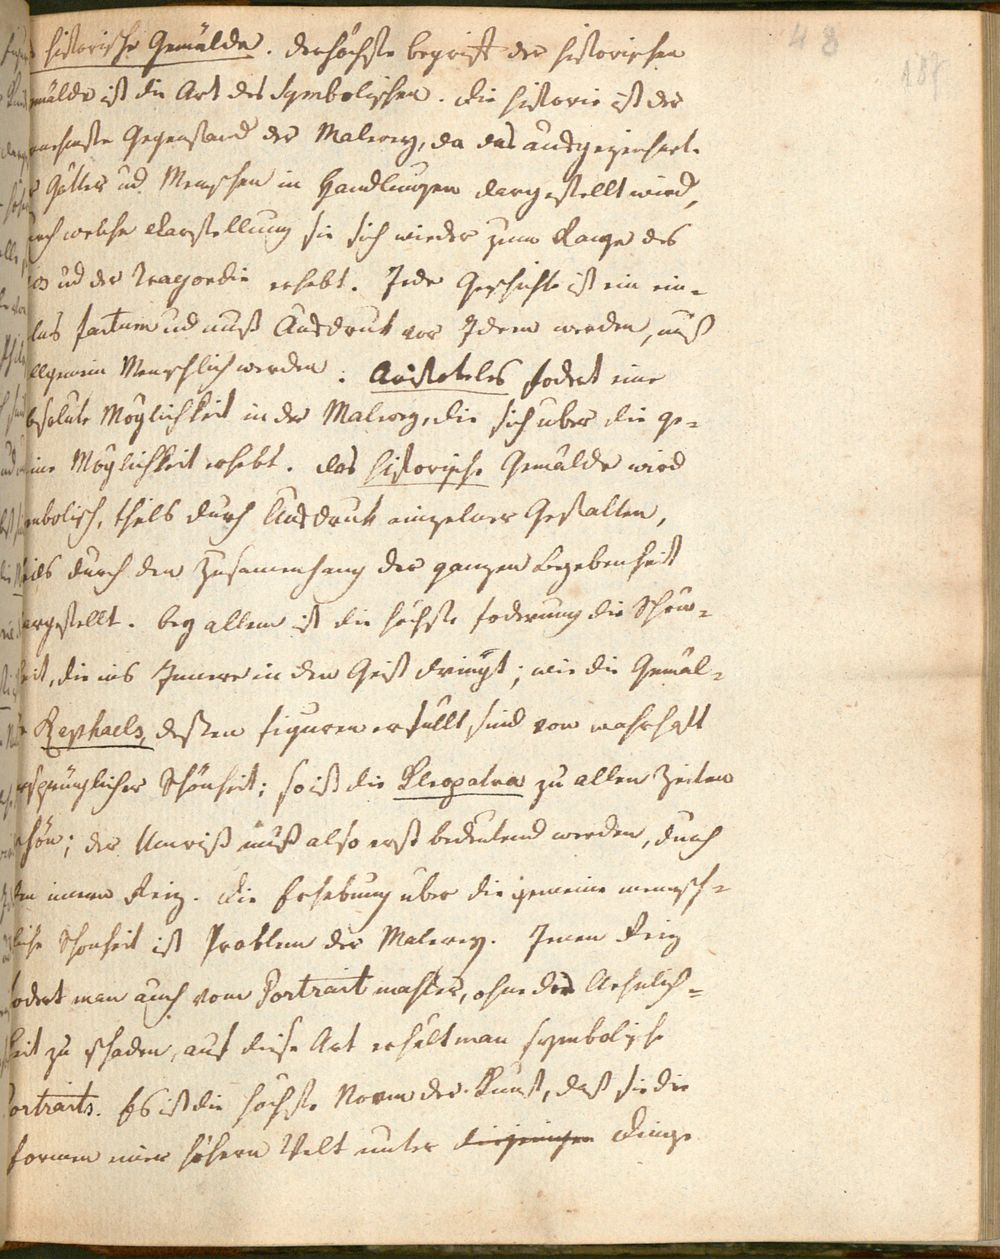 48
187
historische Gemälde. Der höchste Begrift der historischen
mälde ist die Art des Symbolischen. Die Historie ist der
nehmste Gegenstand der Malerey, da das ausgezeichnet.
Götter ud Menschen in Handlungen dargestellt wird,
urch welche Darstellung sie sich wieder zum Range des
os ud der Tragoedie erhebt. Jede Geschichte ist ein ein=
lnes factum ud muß Ausdruk von Ideen werden, muß
llgemein Menschlich werden. Aristoteles fodert eine
bsolute Möglichkeit in der Malerey, die sich uber die ge=
eine Möglichkeit erhebt. Das historische Gemälde wird
mbolisch, theils durch Ausdruk einzelner Gestalten,
eils durch den Zusammenhang der ganzen Begebenheit
argestellt. Bey allem ist die höchste Foderung die Schön=
eit, die ins Innere in den Geist dringt; wie die Gemäl=
Raphaels, deßen Figuren erfüllt sind von wahrhaft
rsprünglicher Schönheit; so ist die Kleopatra zu allen Zeiten
schön; der Umriß muß also erst bedeutend werden, durch
den innern Reiz. Die Erhebung uber die gemeine mensch=
liche Schonheit ist Problem der Malerey. Jenen Reiz
fodert man auch vom Portraitmahler, ohne der Aehnlich=
keit zu schaden, auf diese Art erhält man symbolische
Portraits. Es ist die höchste Norm der Kunst, daß sie die
Formen einer höhern Welt unter diejenigen Dinge